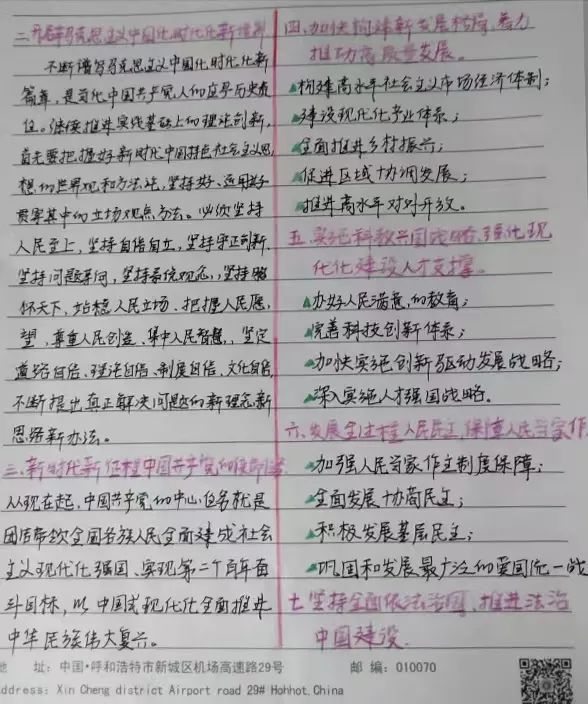 二、开辟马克思主义中国化时代化新境界
不断谱写马克思主义中国化时代化新
篇章，是当代中国共产党人的庄严历史责
任。继续推进实践基础上的理论创新，
首先要把握好新时代中国特色社会主义思
想的世界观和方法论，坚持好、运用好
贯穿其中的立场观点方法。必须坚持
人民至上，坚持自信自立，坚持守正创新，
坚持问题导向，坚持系统观念，坚持胸
怀天下，站稳人民立场、把握人民愿
望、尊重人民创造、集中人民智慧，坚定
道路自信、理论自信、制度自信、文化自信，
不断提出真正解决问题的新理念新
思路新办法。
三、新时代新征程中国共产党的使命任务
从现在起，中国共产党的中心任务就是
团结带领全国各族人民全面建成社会
主义现代化强国、实现第二个百年奋
斗目标，以中国式现代化全面推进
中华民族伟大复兴。
四、加快构建新发展格局，着力
推动高质量发展。
构建高水平社会主义市场经济体制；
建设现代化产业体系；
全面推进乡村振兴；
促进区域协调发展；
推进高水平对外开放。
五、实施科教兴国战略、强化现
代化建设人才支撑。
办好人民满意的教育；
完善科技创新体系；
加快实施创新驱动发展战略；
深入实施人才强国战略。
六、发展全过程人民民主，保障人民当家作
加强人民当家作主制度保障；
全面发展协商民主；
积极发展基层民主；
巩固和发展最广泛的爱国统一战
七、坚持全面依法治国，推进法治
中国建设.
址：中国·呼和浩特市新城区机场高速路29号 邮编：010070
ddress: Xin Cheng district Airport road 29# Hohhot, China